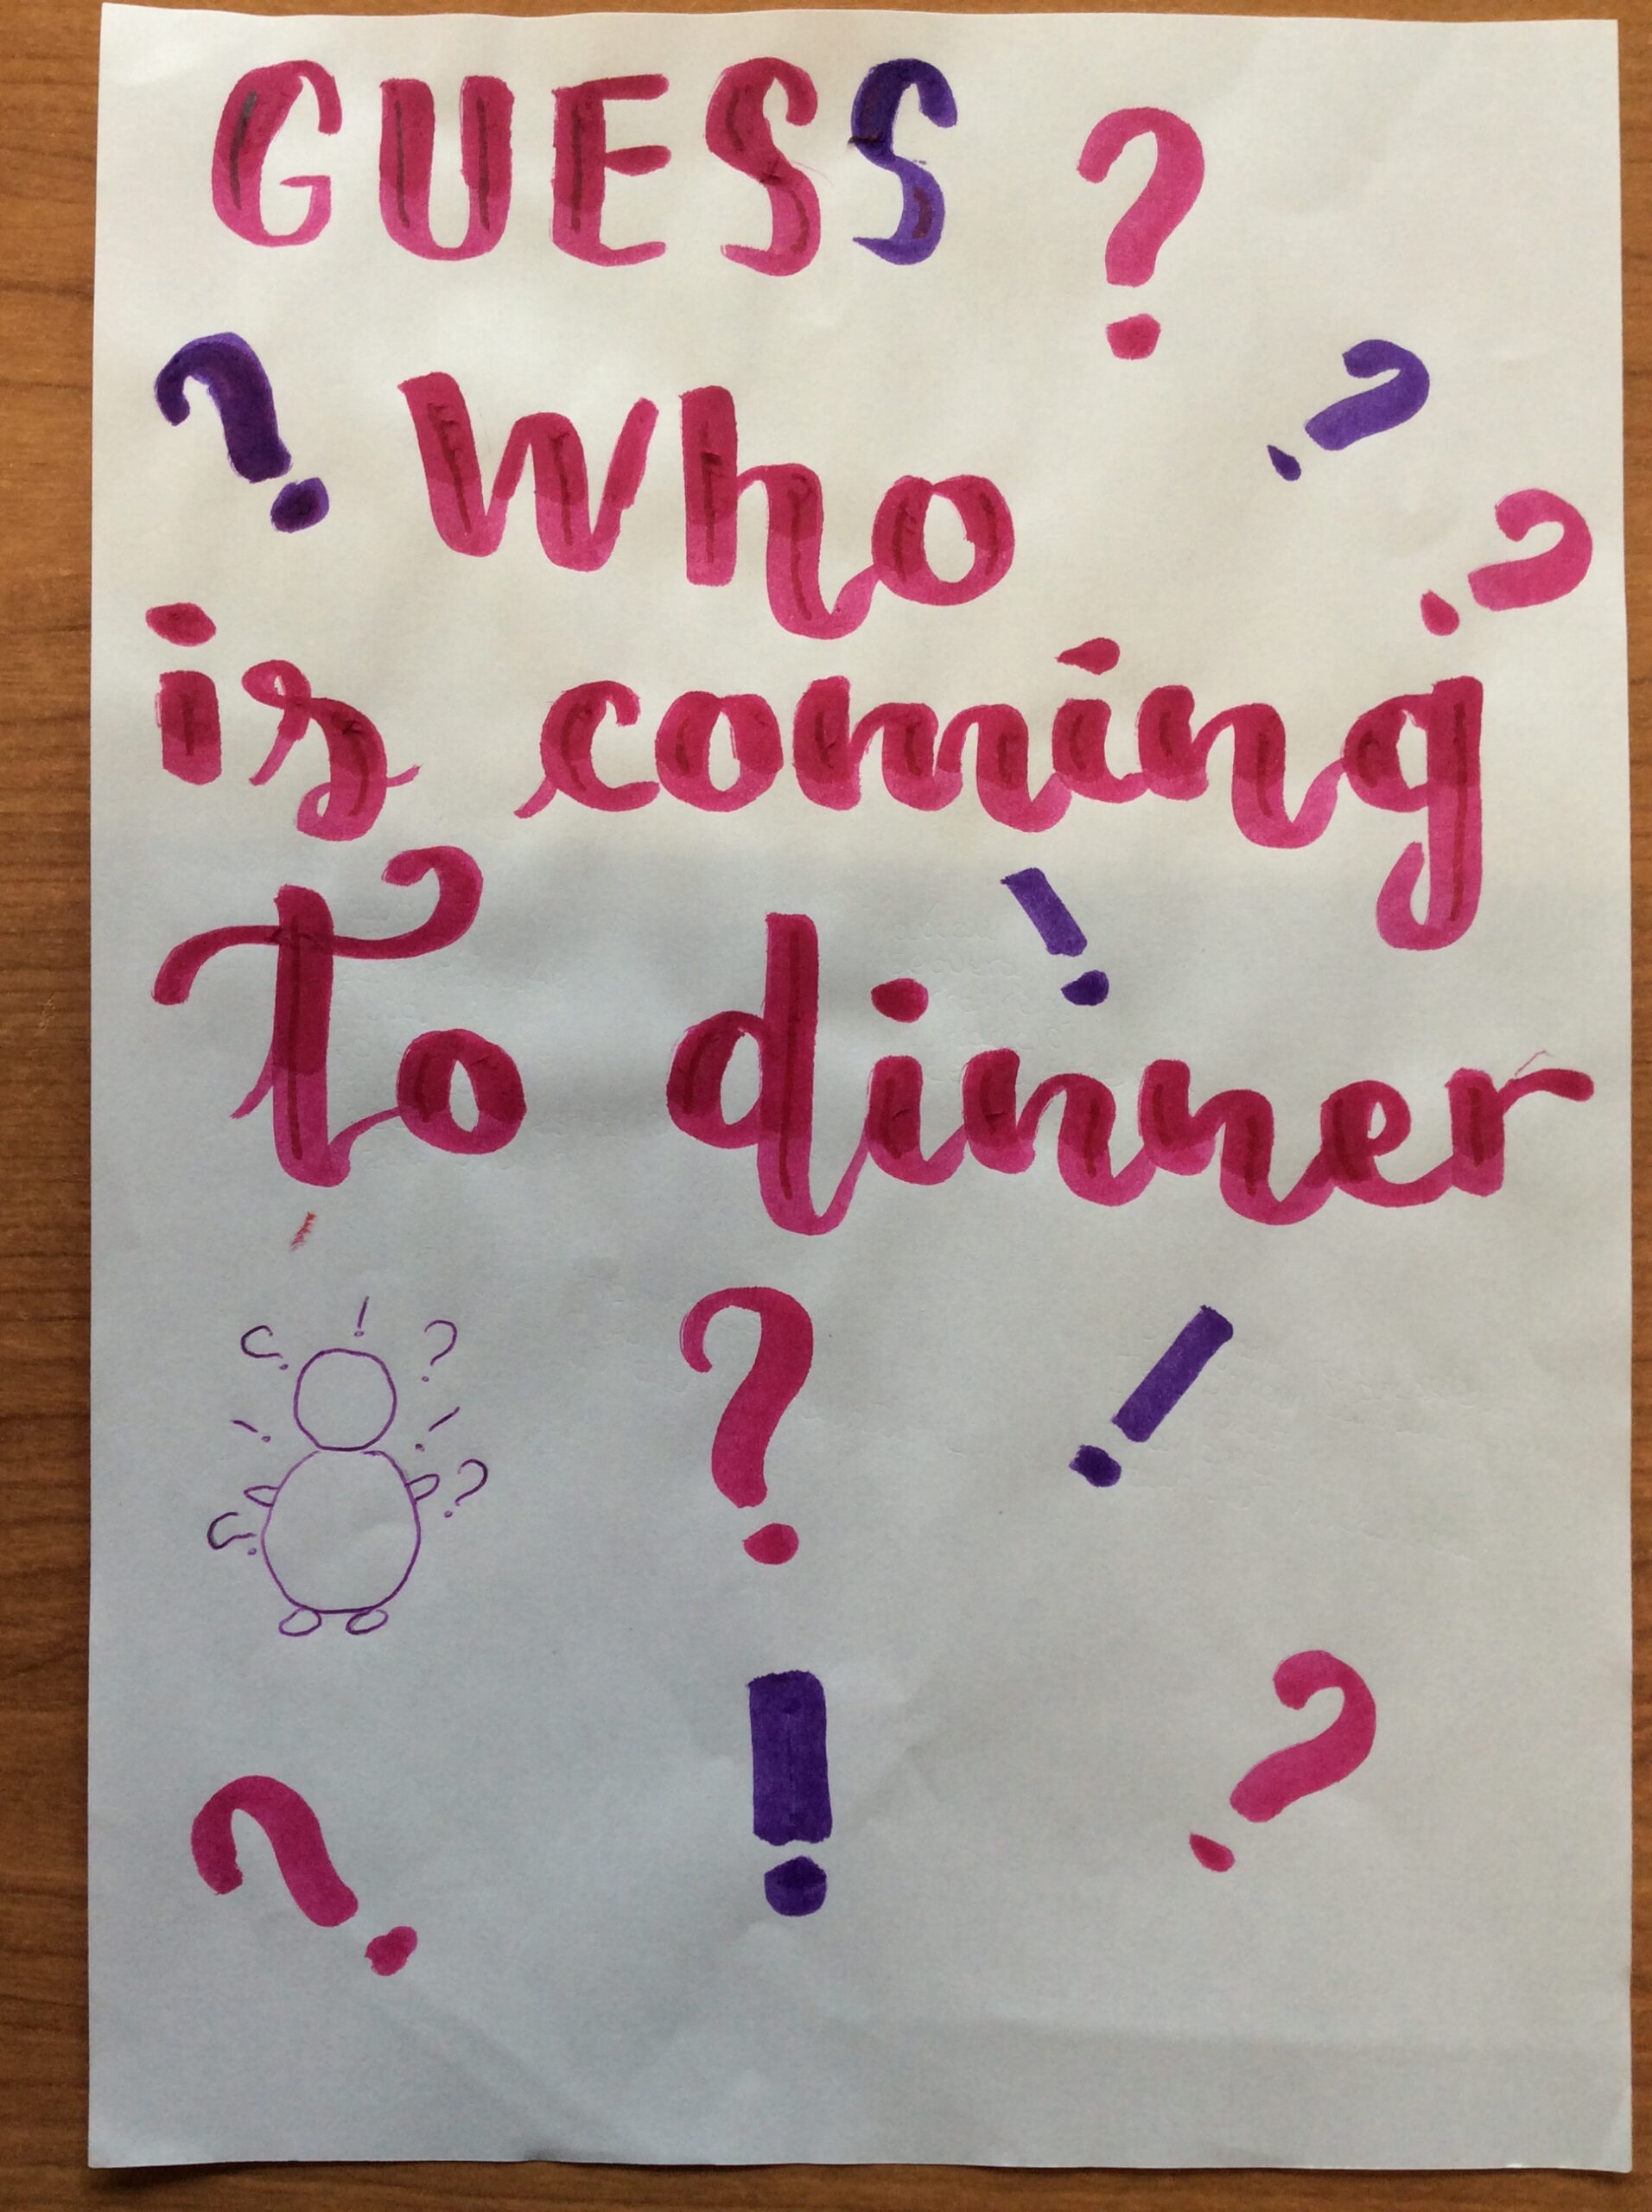 GUESS ?
? Who ?
?
is coming
to dinner
!
? ! ?
! !
? ?
? !
!
? ?